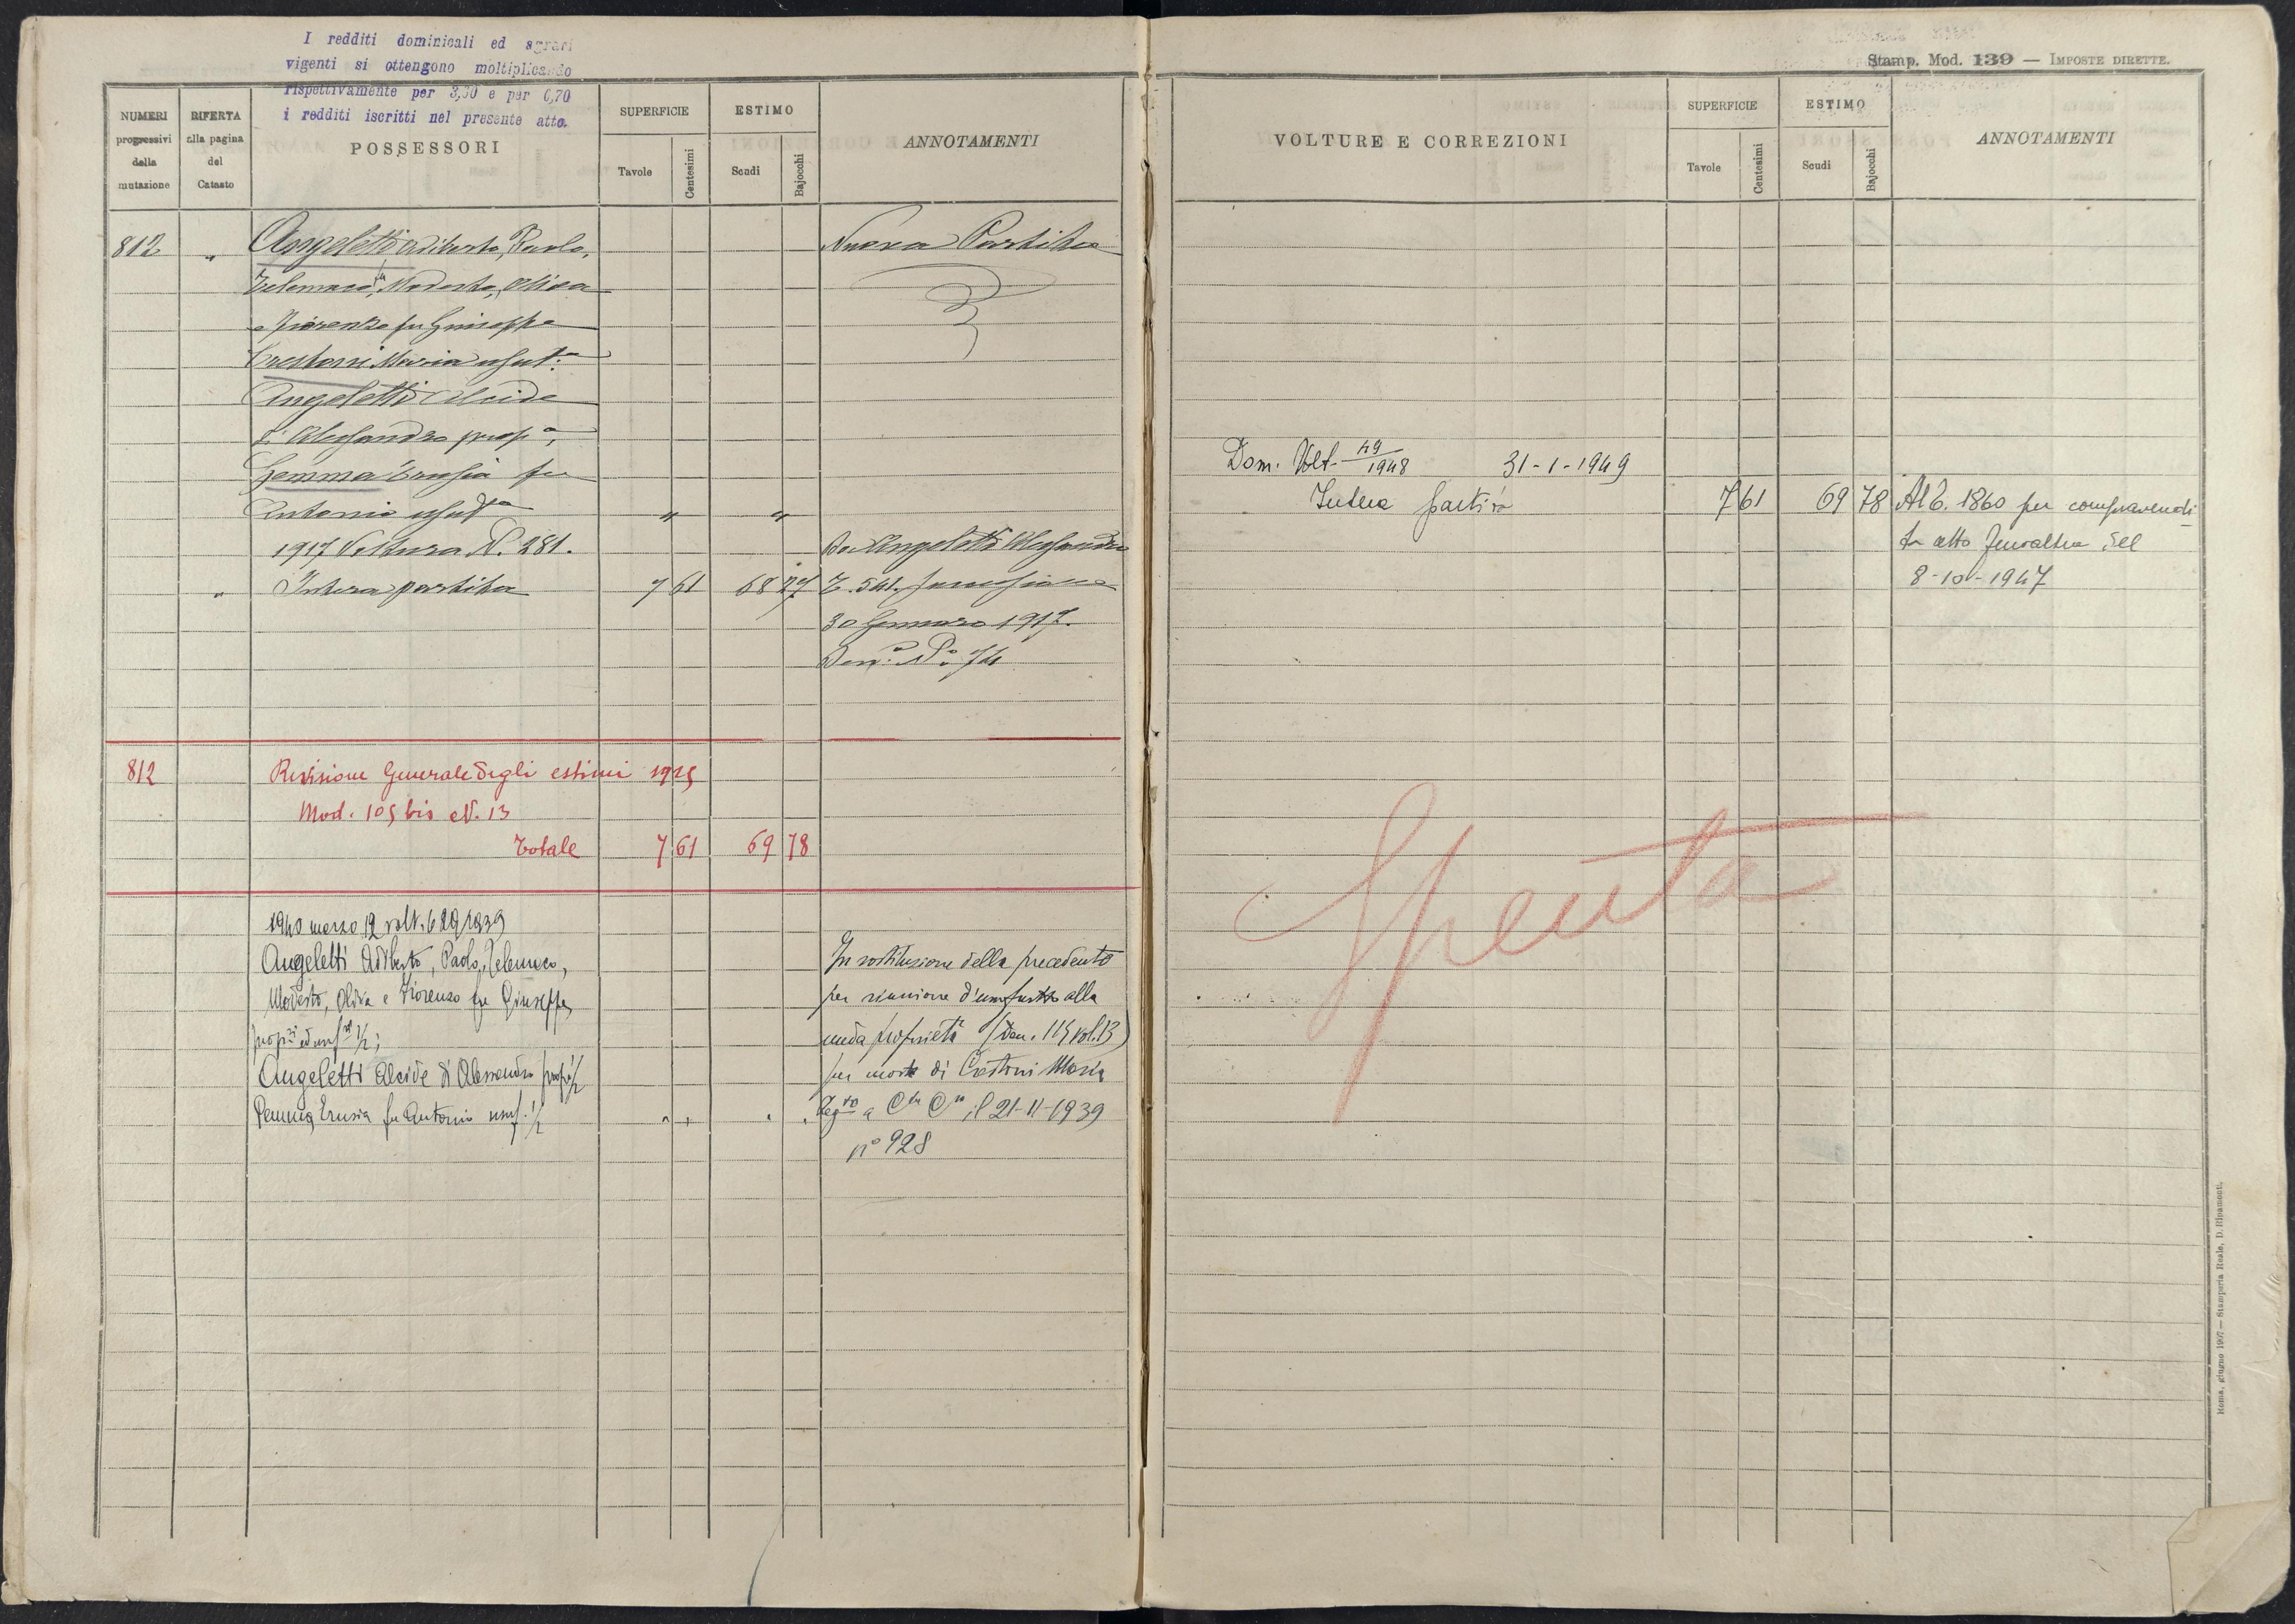 I redditi dominicali ed agrari
vigenti si ottengono moltiplicando
rispettivamente per 3,30 e per 0,70
i redditi iscritti nel presente atto.
NUMERI progressivi della mutazione
RIFERTA alla pagina del Catasto
POSSESSORI
SUPERFICIE
Tavole
Centesimi
ESTIMO
Scudi
Bajocchi
ANNOTAMENTI
812 " Angeletti Adiberto, Paolo, Nuova Partita
Telemaco, Modesto, Oliva
e Fiorenzo fu Giuseppe
Crestoni Maria usuf.a
Angeletti Alcide
di Alessandro prop.o,
Gemma Erusia fu
Antonio usuf.a " "
1917 Voltura N. 281. Da Angeletti Alessandro
" Intera partita 7 61 68 27 T. 541.
30 Gennaio 1917.
Den. N.o 74
812 Revisione Generale degli estimi 1925
Mod. 105 bis N. 13
Totale 7 61 69 78
1940 marzo 12 volt. 629/1939
Angeletti Adiberto, Paolo, Telemaco, In sostituzione della precedente
Modesto, Oliva e Fiorenzo fu Giuseppe, per riunione d'usufrutto alla
prop.ri ed usuf. 1/2; nuda proprietà (Den. 114 vol. 13)
Angeletti Alcide di Alessandro prop. 1/2 per morte di Crestoni Maria
Erusia fu Antonio usuf. 1/2 Reg.to a C.tr C.o il 21-11-1939
n° 928
Stamp. Mod. 139 — IMPOSTE DIRETTE.
VOLTURE E CORREZIONI
SUPERFICIE
Tavole
Centesimi
ESTIMO
Scudi
Bajocchi
ANNOTAMENTI
Dom. Volt. 49/1948 31-1-1949
Intera partita 7 61 69 78 Al C. 1860 per compravendi-
ta atto del
8-10-1947
Spenta
Roma, giugno 1907 — Stamperia Reale, D. Ripamonti.